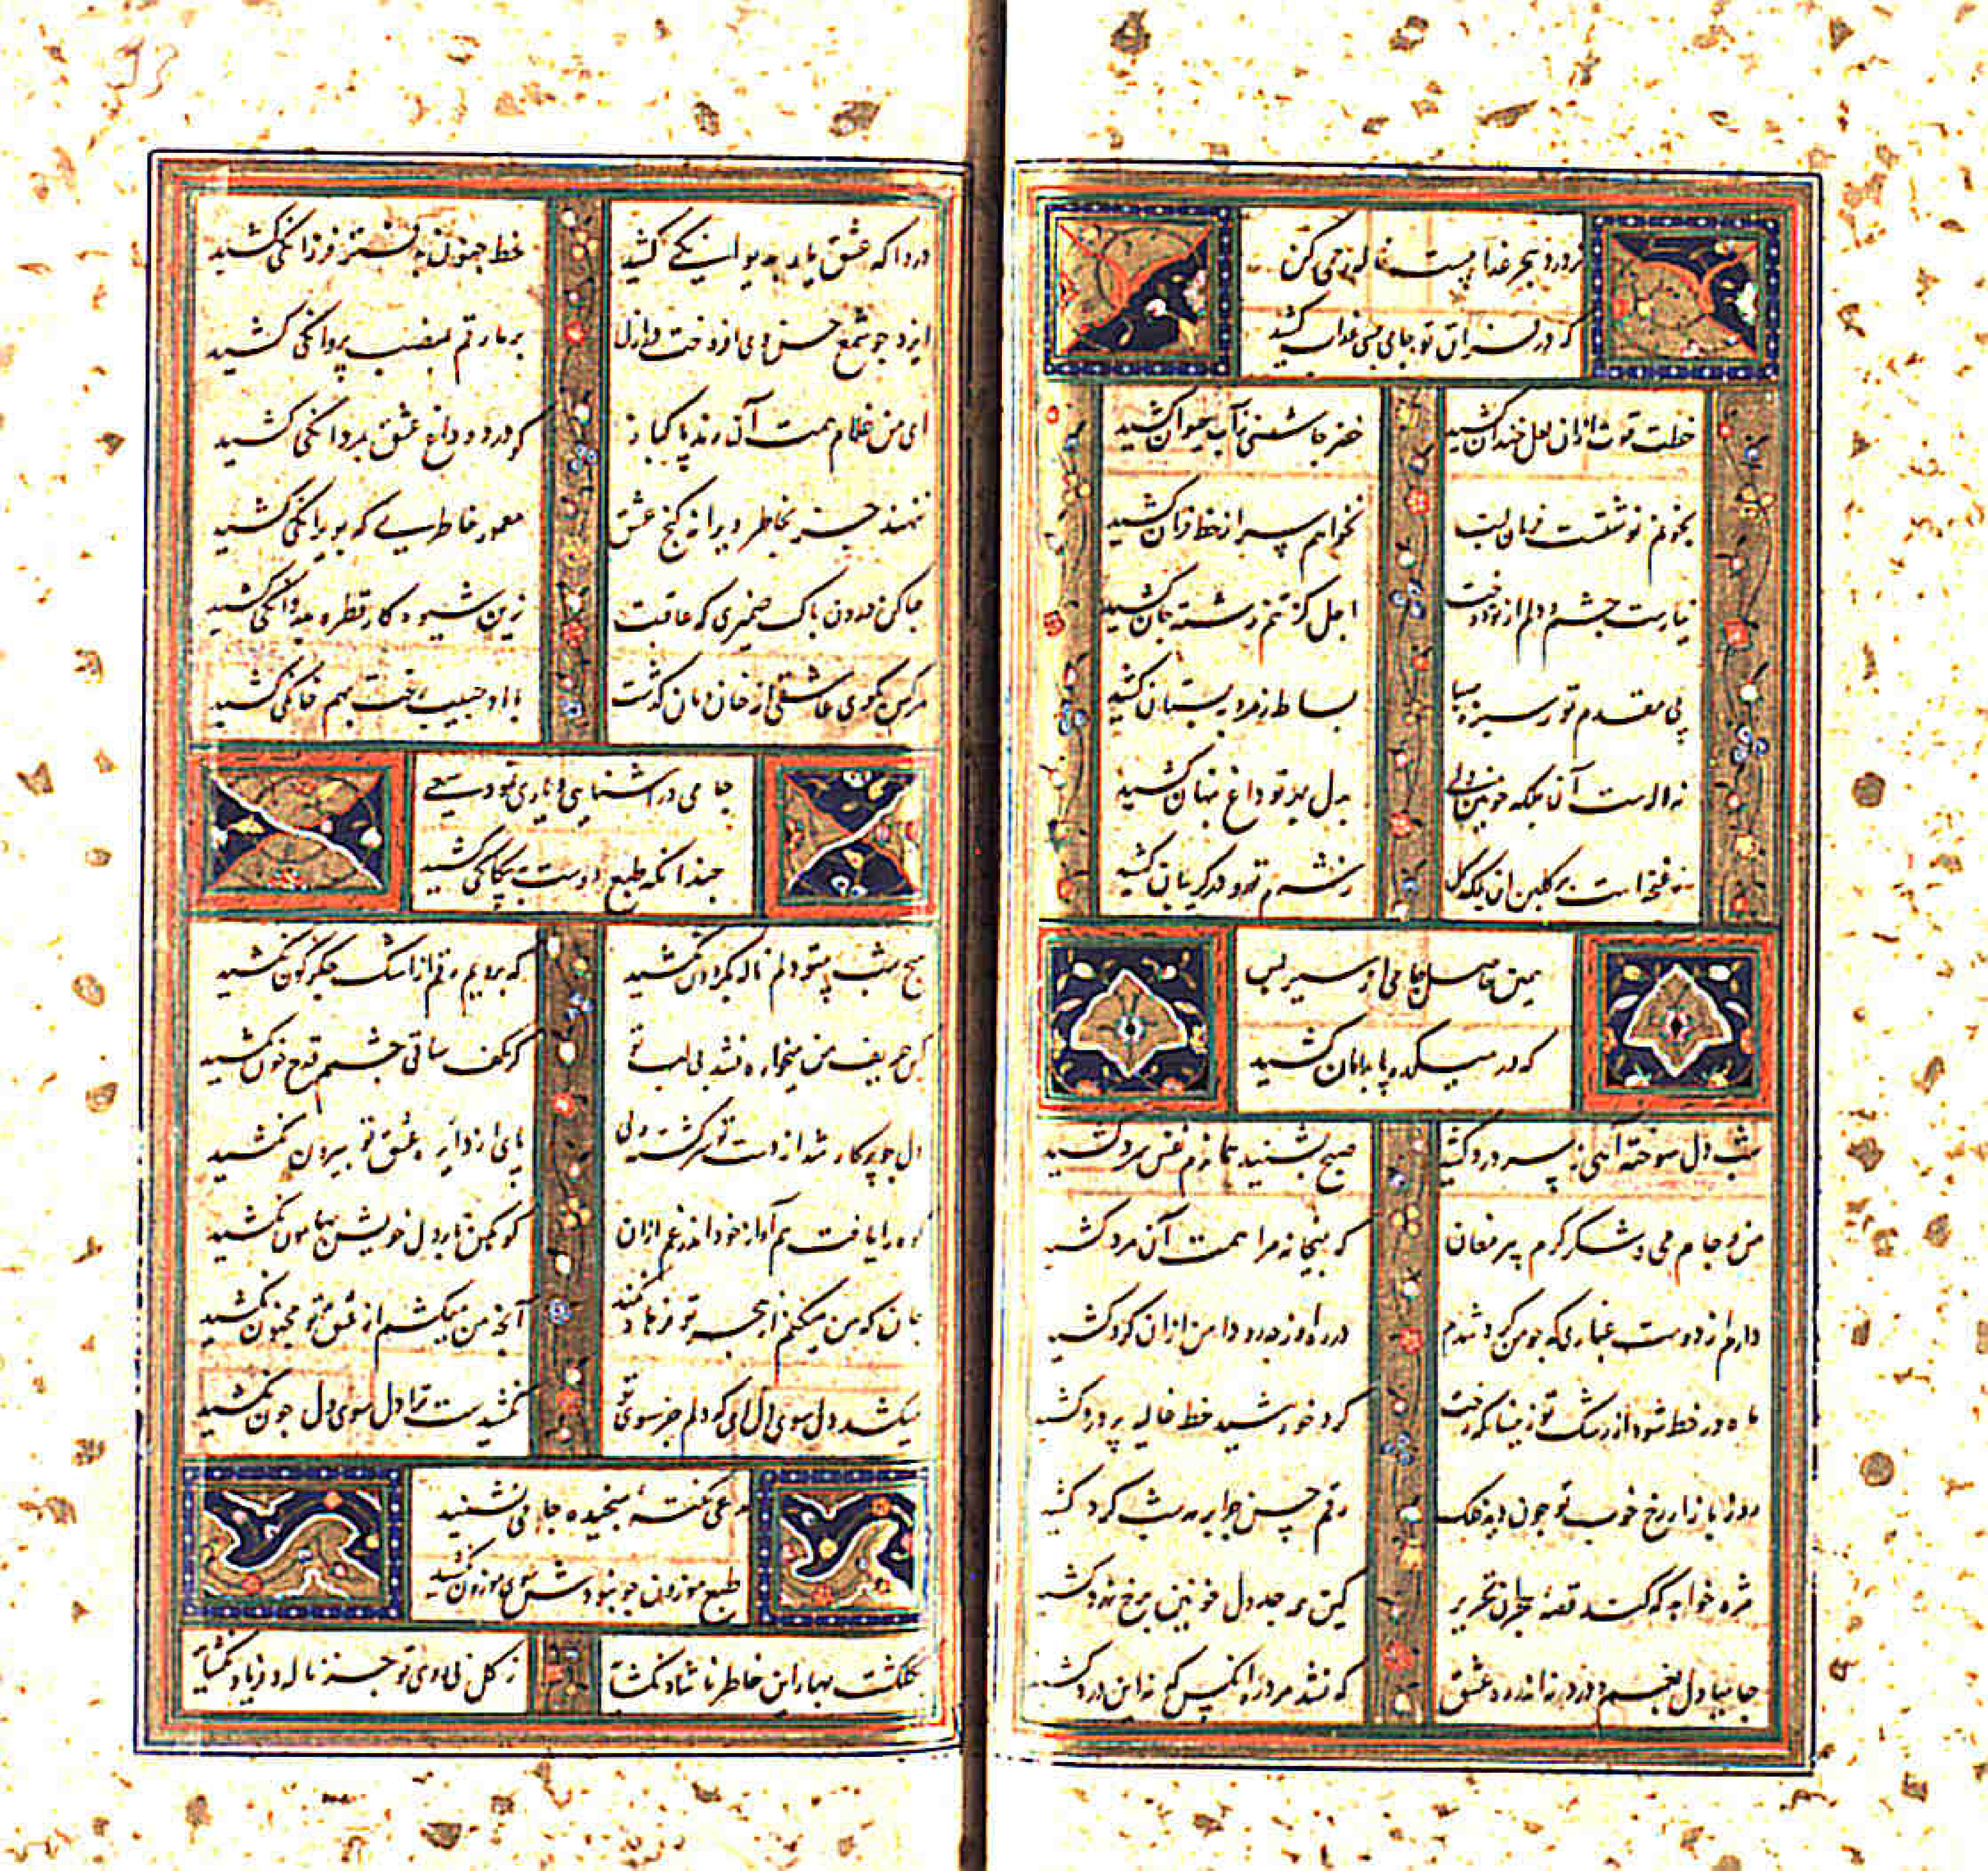 ز درد هجر عذابیست
که در فراق تو جامی بسی عذاب کشید
خطت قوت ازان لعل خندان کشید
خضر چاشنی ز آب حیوان کشید
بخونم نوشتست فرمان لبت
نخواهم سر از خط فرمان کشید
اجل کز تنم رشته جان کشید
پی مقدم تو ز سبزه صبا
بساط زمرد به بستان کشید
نه لاله ست آن بلکه خونین دلی
بدل بد تو داغ پنهان کشید
نه غنچه است بر گلبن آن بلکه گل
ز شرم تو رو در گریبان کشید
همین حاصل جامی از سیر بس
که در میکده پا بدامان کشید
شب دل سوخته آهی ز سر درد کشید
صبح بشنید تمام نفس سرد کشید
من و جام می و شکر کرم پیر مغان
که بمیخانه مرا همت آن مرد کشید
دارم از دوست غباری که چو من گرد شدم
در ره او ز چه رو دامن ازان گرد کشید
ماه در خط شود از رشک تو زینسان که رخت
گرد خورشید خط غالیه پرورد کشید
روز بازار رخ خوب تو چون دید فلک
رقم حسن
مژه خواهد که کند قصه هجران تحریر
کین همه جدول خونین برخ زرد کشید
جامیا دل بغم و درد نه اندر ره عشق
که نشد مرد ره آنکس که نه این درد کشید
دردا که عشق یار به دیوانگی کشید
خط جنون به دفتر فرزانگی کشید
ایزد چو شمع حسن وی افروخت در ازل
بر ما رقم بمنصب پروانگی کشید
ای من غلام همت آن رند پاکباز
کو درد و داغ عشق بمردانگی کشید
ننهند جز بخاطر ویرانه گنج عشق
معمور خاطری که بویرانگی کشید
جا کن درون پاک ضمیری که عاقبت
زین شیوه کار قطره بدردانگی کشید
هر کس بکوی عاشقی از خان و مان گذشت
با او حبیب رخت بهم خانگی کشید
جامی در آشنایی و یاری نمود سعی
چندانکه طبع دوست به بیگانگی کشید
هیچ شب بیتو دلم ناله بگردون نکشید
که برویم رقم از اشک جگرگون نکشید
کس حریف من میخواره نشد بی لب تو
کز کف ساقی چشمم قدح خون نکشید
دل چو پرکار شد از دست تو سرگشته ولی
پای از دایره عشق تو بیرون نکشید
کوه را یافت هم آواز خود اندر غم ازان
کوهکن بار دل خویش بهامون نکشید
جان کو من میکنم از هجر تو فرهاد نکند
آنچه من میکشم از عشق تو مجنون نکشید
میکشد دل سوی دل ای که دلم جز سوی تو
نکشیدست ترا دل سوی دل چون نکشید
مدعی نکته سنجیده جامی نشنید
طبع موزون چو نبودش سوی موزون نکشید
گلگشت بهار این خاطر ناشاد نگشاید
ز گل بی روی تو جز ناله و فریاد نگشاید